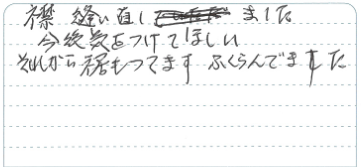 襟 縫い直し ました
今後気をつけてほしい
それから裾もつてます ふくらんでました